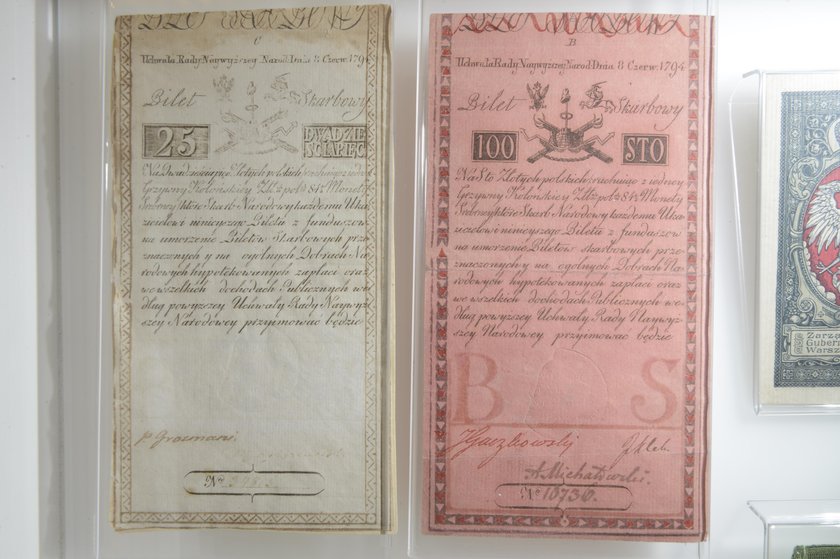 C
Uchwała Rady Naywyższey Narod: Dnia 8 Czerw. 1794
Bilet Skarbowy
25 DWADZIE
ŚCIAPIĘC
Na Dwadzieściapięć Złotych polskich rachuiąc z iedney
Grzywny Kolońskiey Zł. pol. 84½ Monety
Srebrney które Skarb Narodowy każdemu Oka
zicielowi ninieyszego Biletu z funduszow
na umorzenie Biletow Skarbowych prze
znaczonych y na ogolnych Dobrach Na
rodowych hypotekowanych zapłaci oraz
we wszelkich dochodach Publicznych we
dług powyższey Uchwały Rady Naywyż
szey Narodowey przyimować będzie
P Grozmani
No
B
Uchwała Rady Naywyższey Narod: Dnia 8 Czerw. 1794
Bilet Skarbowy
100 STO
Na Sto Złotych polskich rachuiąc z iedney
Grzywny Kolońskiey Zł. pol. 84½ Monety
Srebrney które Skarb Narodowy każdemu Oka
zicielowi ninieyszego Biletu z funduszow
na umorzenie Biletow skarbowych prze
znaczonych y na ogolnych Dobrach Na
rodowych hypotekowanych zapłaci oraz
we wszelkich dochodach Publicznych we
dług powyższey Uchwały Rady Naywyż
szey Narodowey przyimować będzie
B S
JGaczkowski
A. Michałowski
No 16730.
Zarzą
Guberna
Warsz